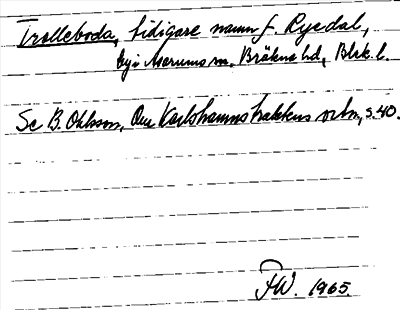 Trolleboda, tidigare namn f. Rysdal,
by i Asarums sn. Bräkne hd, Blek. l.
Se B. Ohlsson, Om Karlshamnstraktens ortn., s. 40.
FW. 1965.